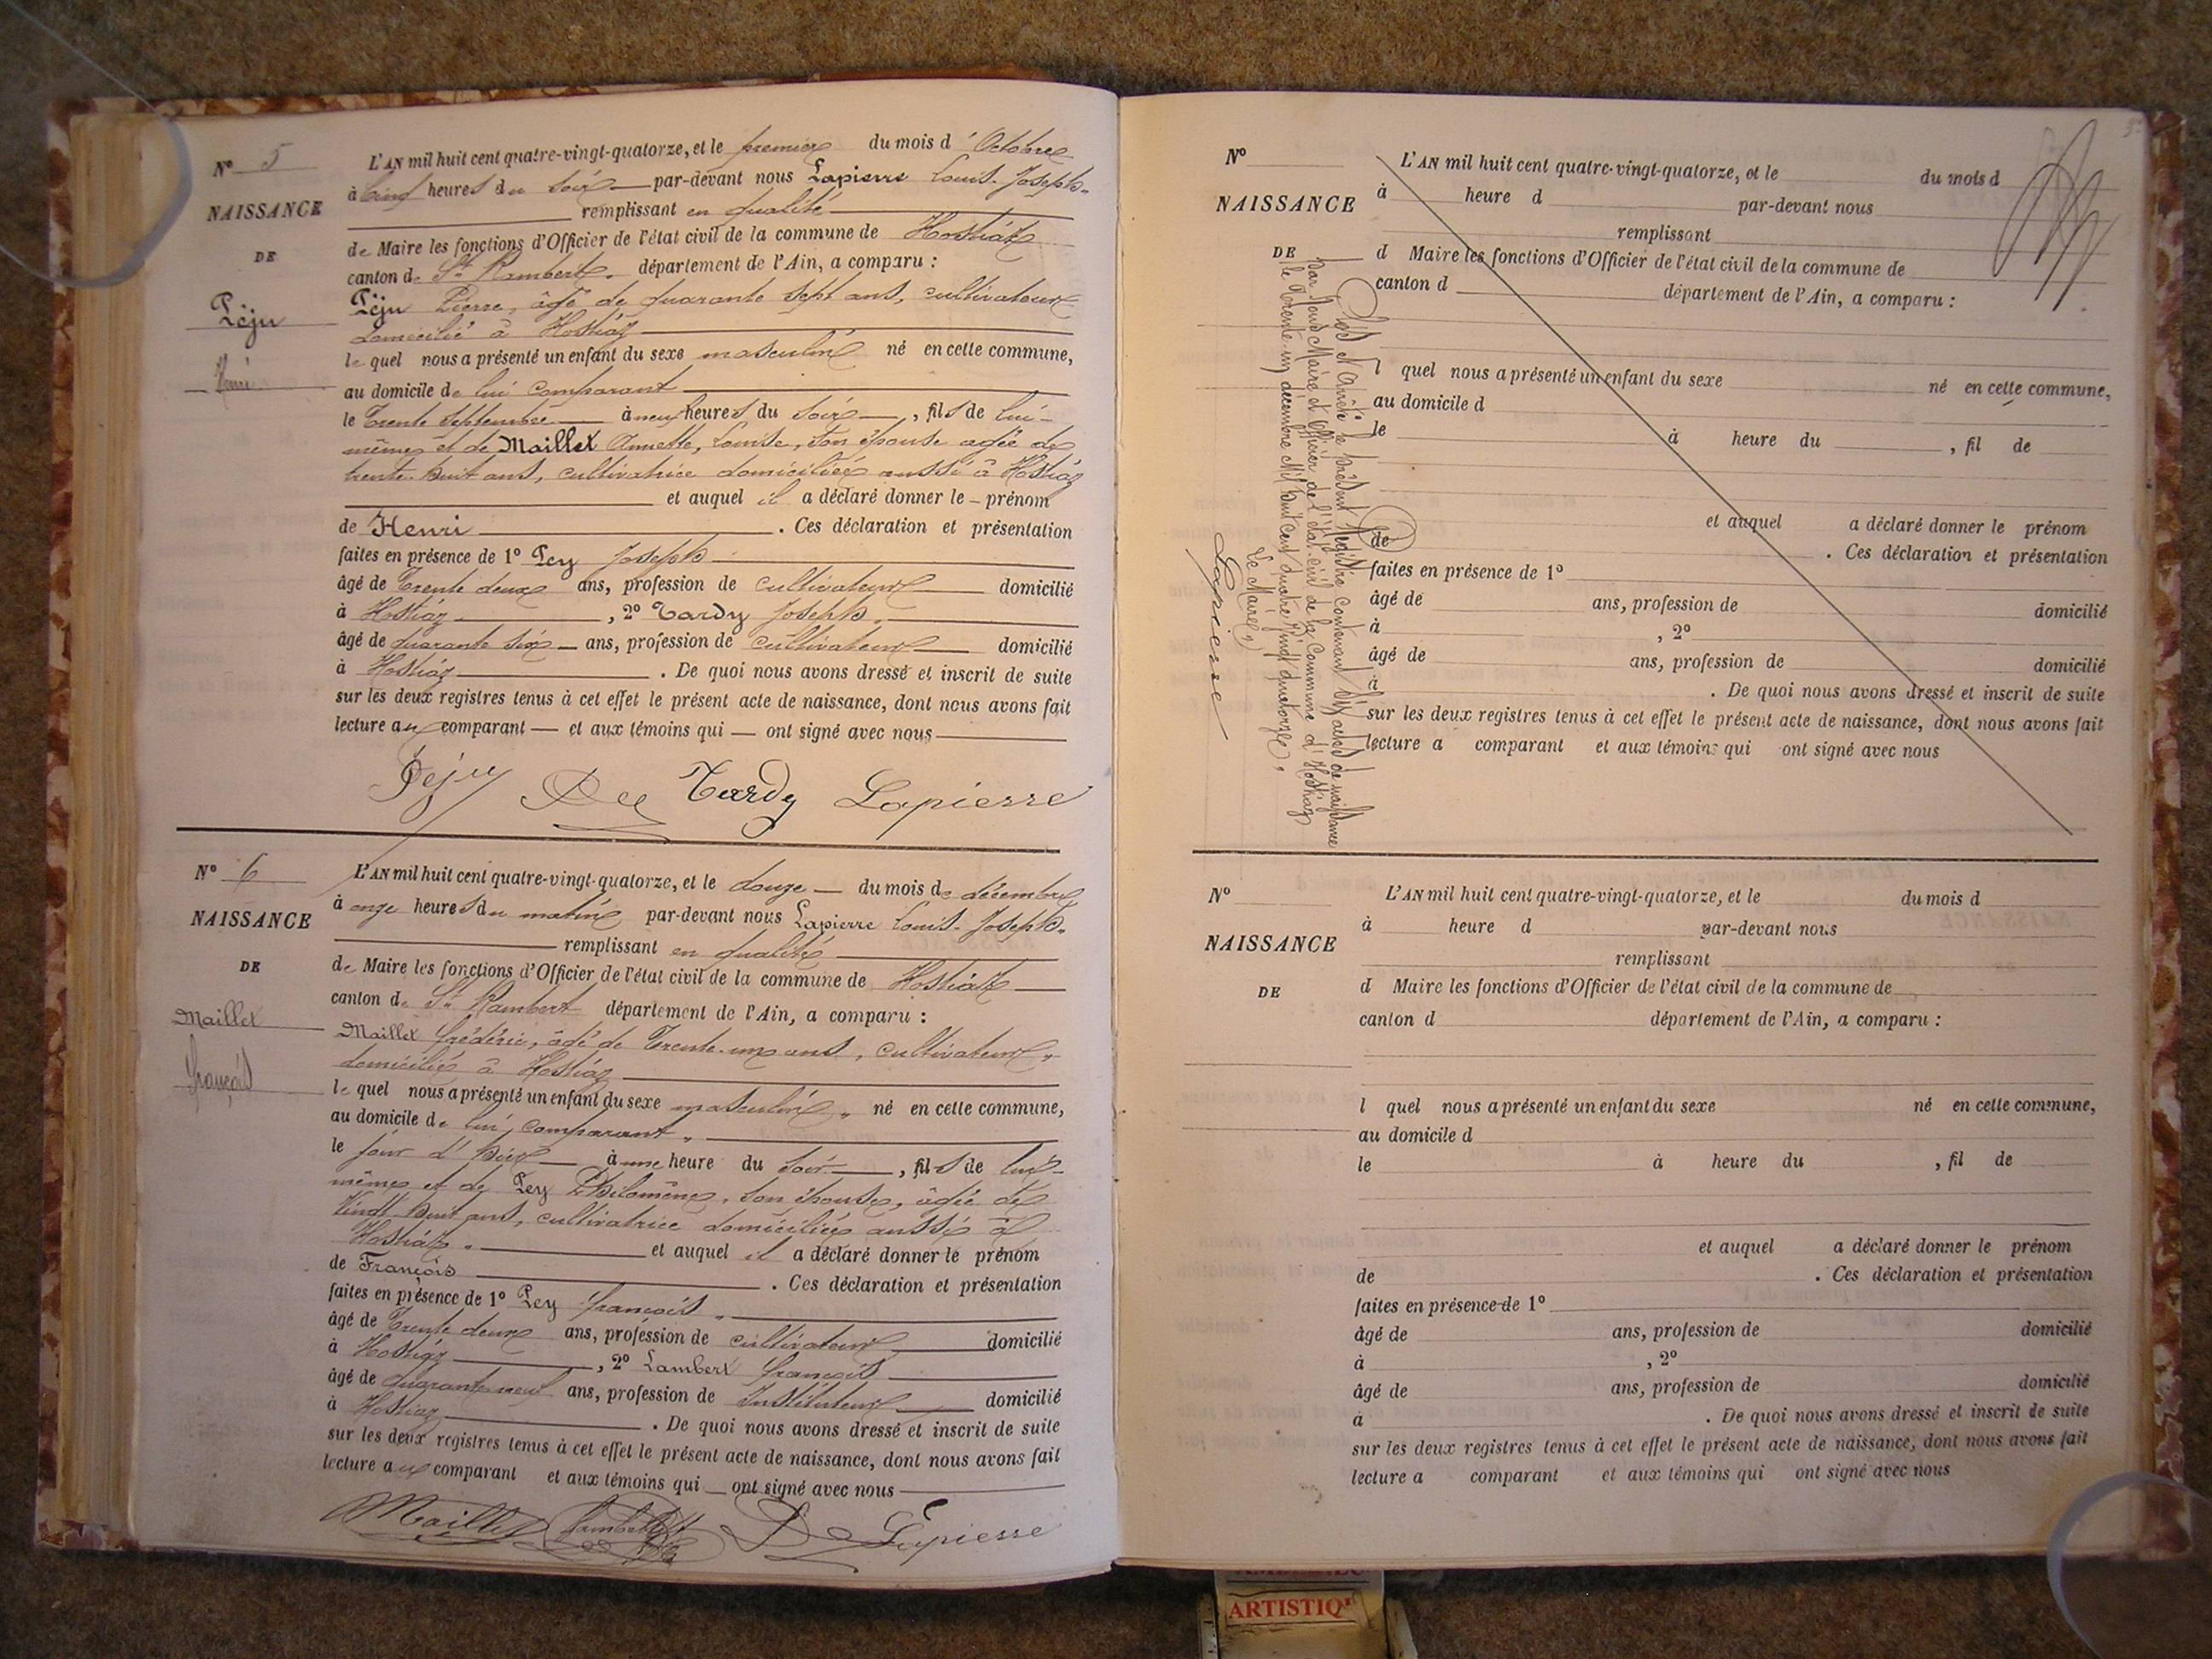 N° 5
NAISSANCE
DE
Péju
Henri
L'AN mil huit cent quatre-vingt-quatorze, et le premier du mois d' Octobre
à cinq heures du soir par-devant nous Lapierre Louis-Joseph
remplissant en qualité
de Maire les fonctions d'Officier de l'état civil de la commune de Hostiaz
canton de St Rambert département de l'Ain, a comparu :
Péju Pierre, âgé de quarante sept ans, cultivateur
domicilié à Hostiaz
le quel nous a présenté un enfant du sexe masculin né en cette commune,
au domicile de lui comparant
le Trente Septembre à neuf heures du soir, fils de lui-
même et de Maillet Annette, Louise, son épouse agée de
trente-huit ans, cultivatrice domiciliée aussi à Hostiaz
et auquel il a déclaré donner le - prénom
de Henri . Ces déclaration et présentation
faites en présence de 1° Pey Joseph
âgé de Trente deux ans, profession de cultivateur domicilié
à Hostiaz , 2° Tardy Joseph
âgé de quarante six ans, profession de cultivateur domicilié
à Hostiaz . De quoi nous avons dressé et inscrit de suite
sur les deux registres tenus à cet effet le présent acte de naissance, dont nous avons fait
lecture au comparant et aux témoins qui ont signé avec nous
Péju Pey Tardy Lapierre
N° 6
NAISSANCE
DE
Maillet
François
L'AN mil huit cent quatre-vingt-quatorze, et le douze du mois de décembre
à onze heures du matin par-devant nous Lapierre Louis-Joseph
remplissant en qualité
de Maire les fonctions d'Officier de l'état civil de la commune de Hostiaz
canton de St Rambert département de l'Ain, a comparu :
Maillet frédéric, âgé de Trente-un ans, cultivateur
domicilié à Hostiaz
le quel nous a présenté un enfant du sexe masculin né en cette commune,
au domicile de lui comparant
le jour d'hier à une heure du soir, fils de lui-
même et de Pey Philomène, son épouse, âgée de
Vingt huit ans, cultivatrice domiciliée aussi à
Hostiaz et auquel il a déclaré donner le prénom
de François . Ces déclaration et présentation
faites en présence de 1° Pey françois
âgé de Trente deux ans, profession de cultivateur domicilié
à Hostiaz , 2° Lambert françois
âgé de quarante neuf ans, profession de Instituteur domicilié
à Hostiaz . De quoi nous avons dressé et inscrit de suite
sur les deux registres tenus à cet effet le présent acte de naissance, dont nous avons fait
lecture au comparant et aux témoins qui ont signé avec nous
Maillet Lambert Pey Lapierre
N°
NAISSANCE
DE
L'AN mil huit cent quatre-vingt-quatorze, et le du mois d
à heure d par-devant nous
remplissant
d Maire les fonctions d'Officier de l'état civil de la commune de
canton d département de l'Ain, a comparu :
l quel nous a présenté un enfant du sexe né en cette commune,
au domicile d
le à heure du , fil de
et auquel a déclaré donner le prénom
de . Ces déclaration et présentation
faites en présence de 1°
âgé de ans, profession de domicilié
à , 2°
âgé de ans, profession de domicilié
à . De quoi nous avons dressé et inscrit de suite
sur les deux registres tenus à cet effet le présent acte de naissance, dont nous avons fait
lecture a comparant et aux témoins qui ont signé avec nous
Clos et Arrêté le présent Registre contenant Six actes de naissance
par Nous Maire et Officier de l'état civil de la Commune d'Hostiaz
le Trente-un décembre Mil huit cent quatre Vingt quatorze.
Le Maire
Lapierre
N°
NAISSANCE
DE
L'AN mil huit cent quatre-vingt-quatorze, et le du mois d
à heure d par-devant nous
remplissant
d Maire les fonctions d'Officier de l'état civil de la commune de
canton d département de l'Ain, a comparu :
l quel nous a présenté un enfant du sexe né en cette commune,
au domicile d
le à heure du , fil de
et auquel a déclaré donner le prénom
de . Ces déclaration et présentation
faites en présence de 1°
âgé de ans, profession de domicilié
à , 2°
âgé de ans, profession de domicilié
à . De quoi nous avons dressé et inscrit de suite
sur les deux registres tenus à cet effet le présent acte de naissance, dont nous avons fait
lecture a comparant et aux témoins qui ont signé avec nous
ARTISTIQ